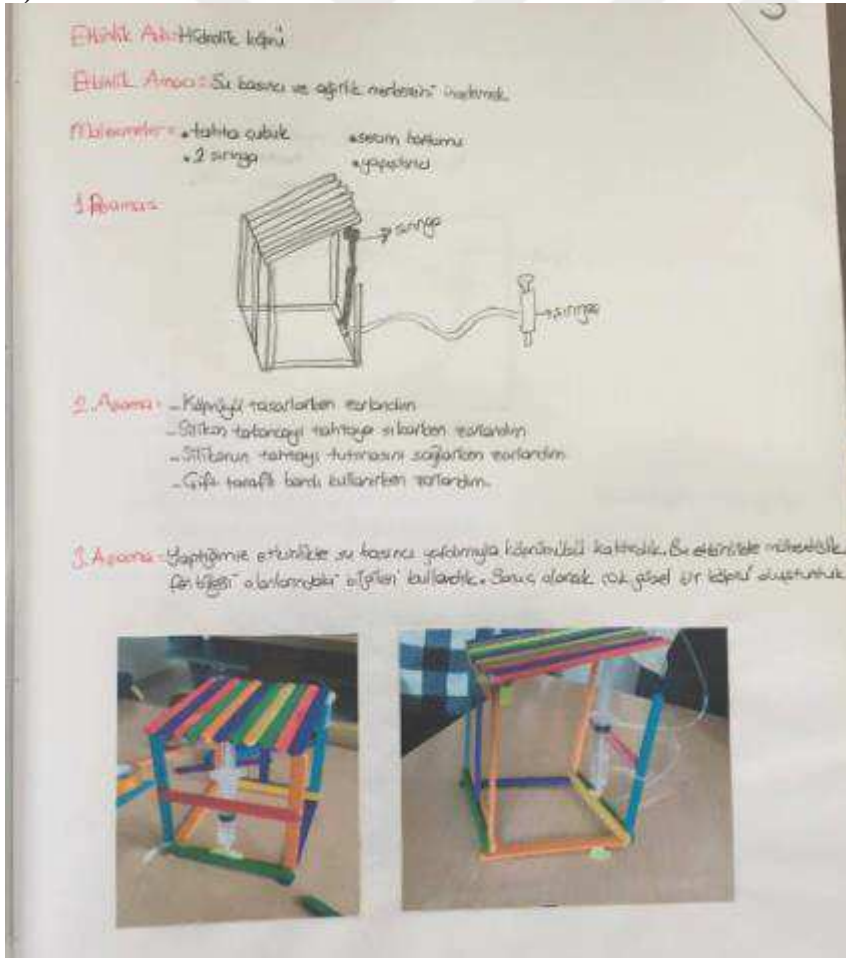 3
Etkinlik Adı: Hidrolik köprü
Etkinlik Amacı: Su basıncı ve ağırlık merkezini incelemek
Malzemeler: • tahta çubuk • serum hortumu
• 2 şırınga • yapıştırıcı
1. Aşama:
şırınga
şırınga
2. Aşama: - Köprüyü tasarlarken zorlandım
- Silikon tabancayı tahtaya sıkarken zorlandım
- Silikonun tahtayı tutmasını sağlarken zorlandım
- Çift taraflı bandı kullanırken zorlandım.
3. Aşama: Yaptığımız etkinlikte su basıncı yardımıyla köprümüzü kaldırdık. Bu etkinlikte mühendislik,
fen bilgisi alanlarındaki bilgileri kullandık. Sonuç olarak çok güzel bir köprü oluşturduk